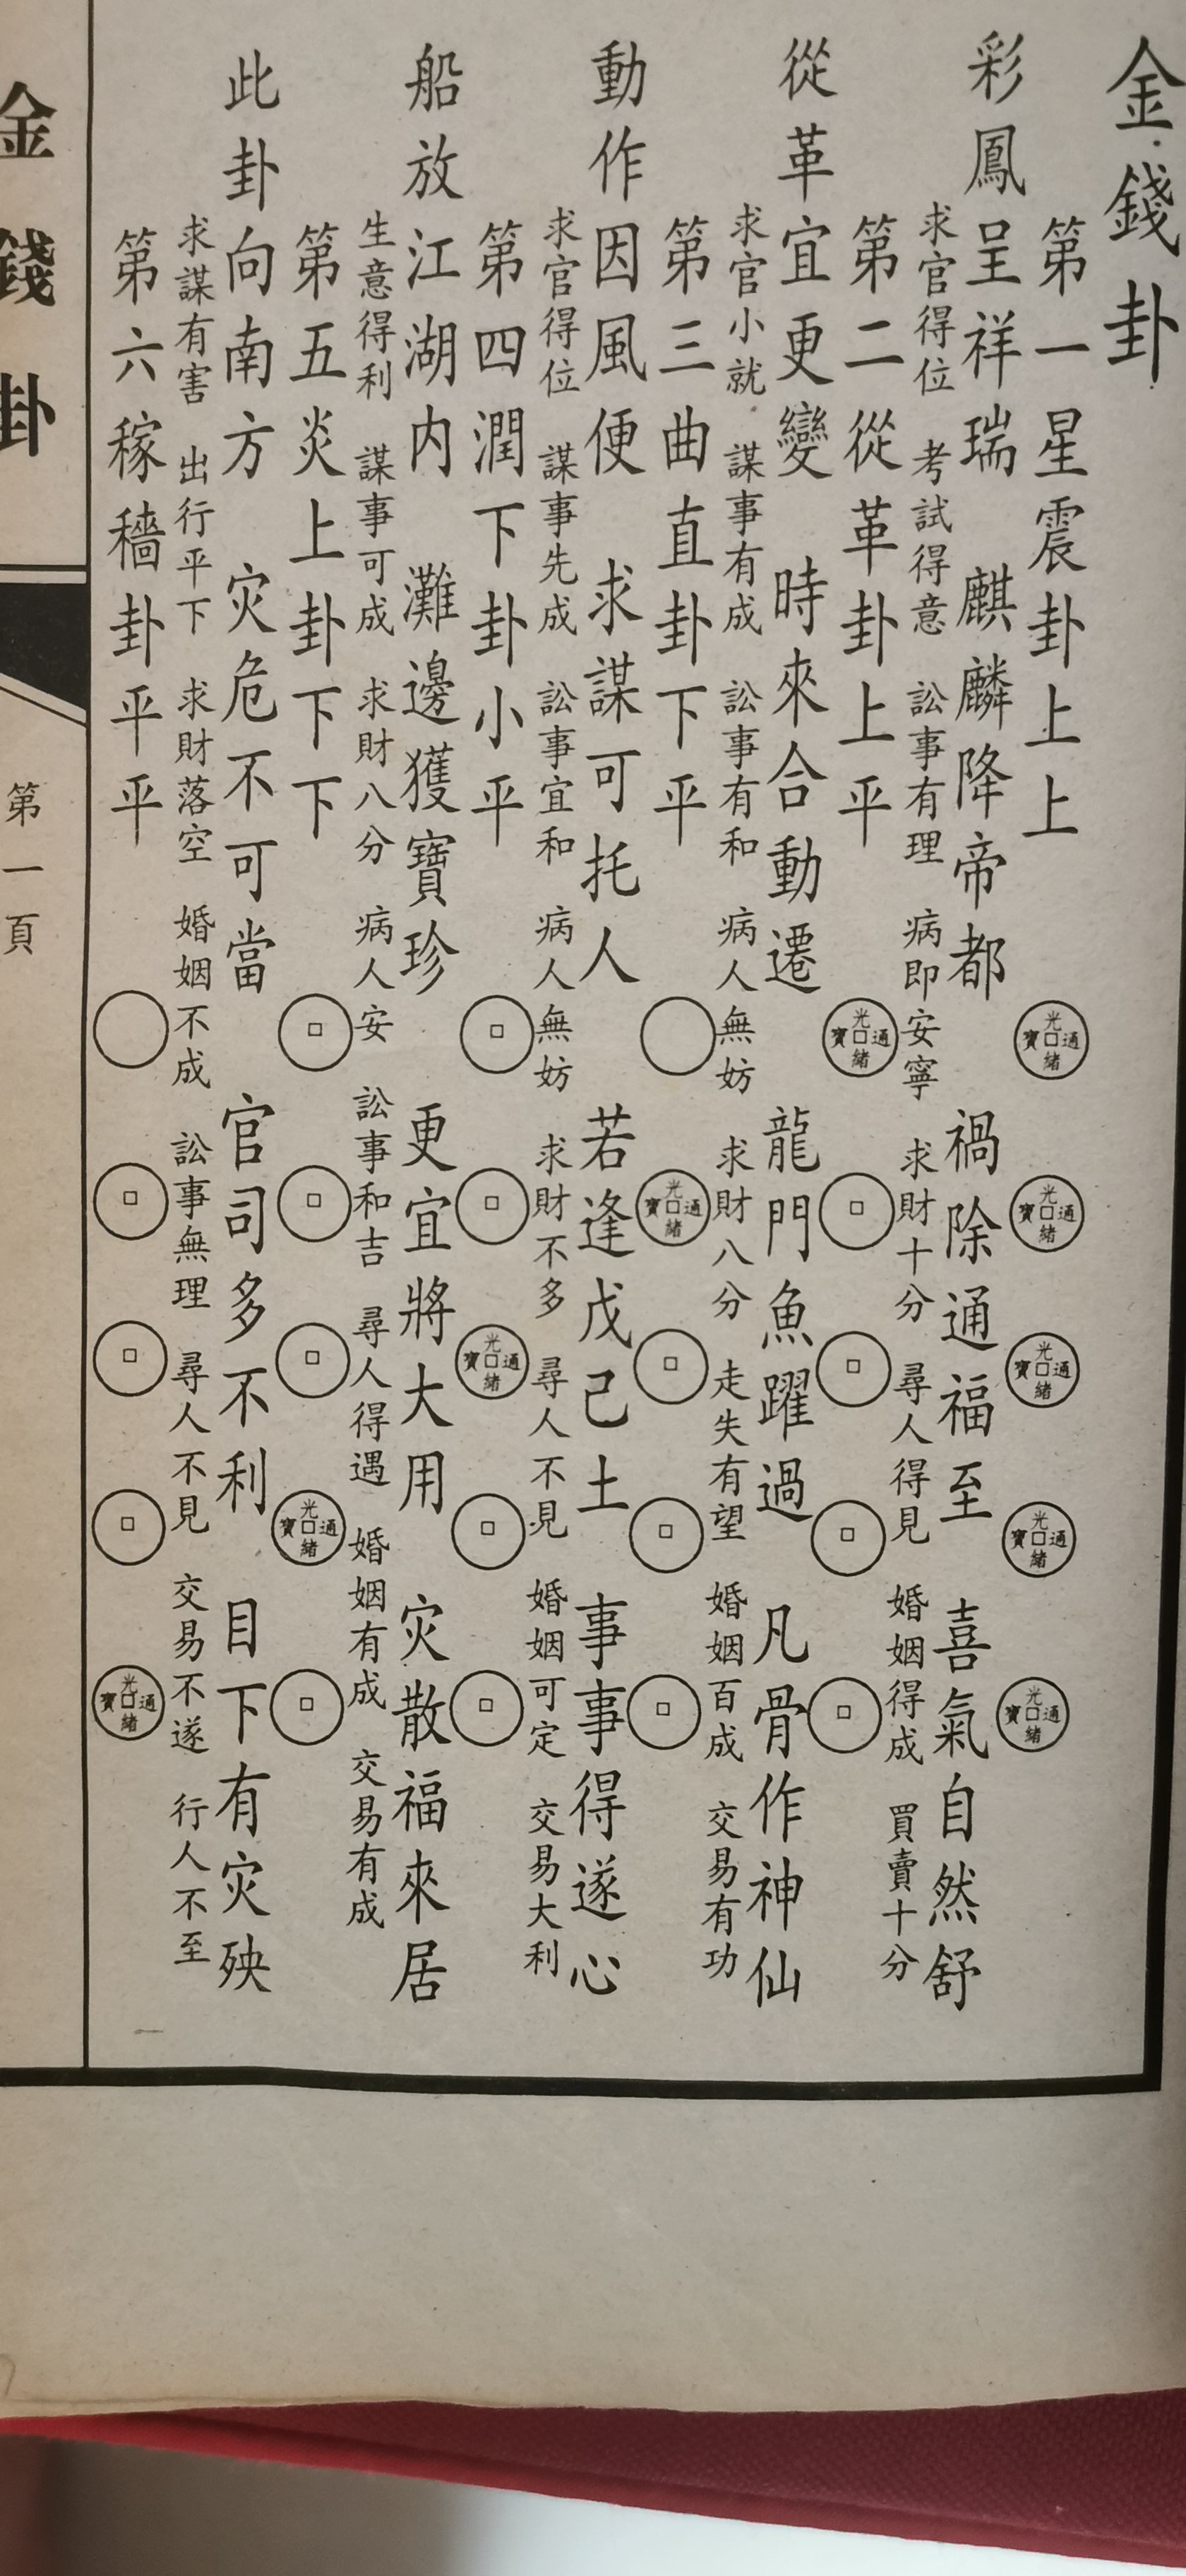 金錢卦
第一星震卦上上 光緒通寶 光緒通寶 光緒通寶 光緒通寶 光緒通寶
彩鳳呈祥瑞 麒麟降帝都 禍除通福至 喜氣自然舒
求官得位 考試得意 訟事有理 病即安寧 求財十分 尋人得見 婚姻得成 買賣十分
第二從革卦上平 光緒通寶
從革宜更變 時來合動遷 龍門魚躍過 凡骨作神仙
求官小就 謀事有成 訟事有和 病人無妨 求財八分 走失有望 婚姻百成 交易有功
第三曲直卦下平 光緒通寶
動作因風便 求謀可托人 若逢戊己土 事事得遂心
求官得位 謀事先成 訟事宜和 病人無妨 求財不多 尋人不見 婚姻可定 交易大利
第四潤下卦小平 光緒通寶
船放江湖内 灘邊獲寶珍 更宜將大用 灾散福來居
生意得利 謀事可成 求財八分 病人安 訟事和吉 尋人得遇 婚姻有成 交易有成
第五炎上卦下下 光緒通寶
此卦向南方 灾危不可當 官司多不利 目下有灾殃
求謀有害 出行平下 求財落空 婚姻不成 訟事無理 尋人不見 交易不遂 行人不至
第六稼穡卦平平 光緒通寶
金錢卦
第一頁